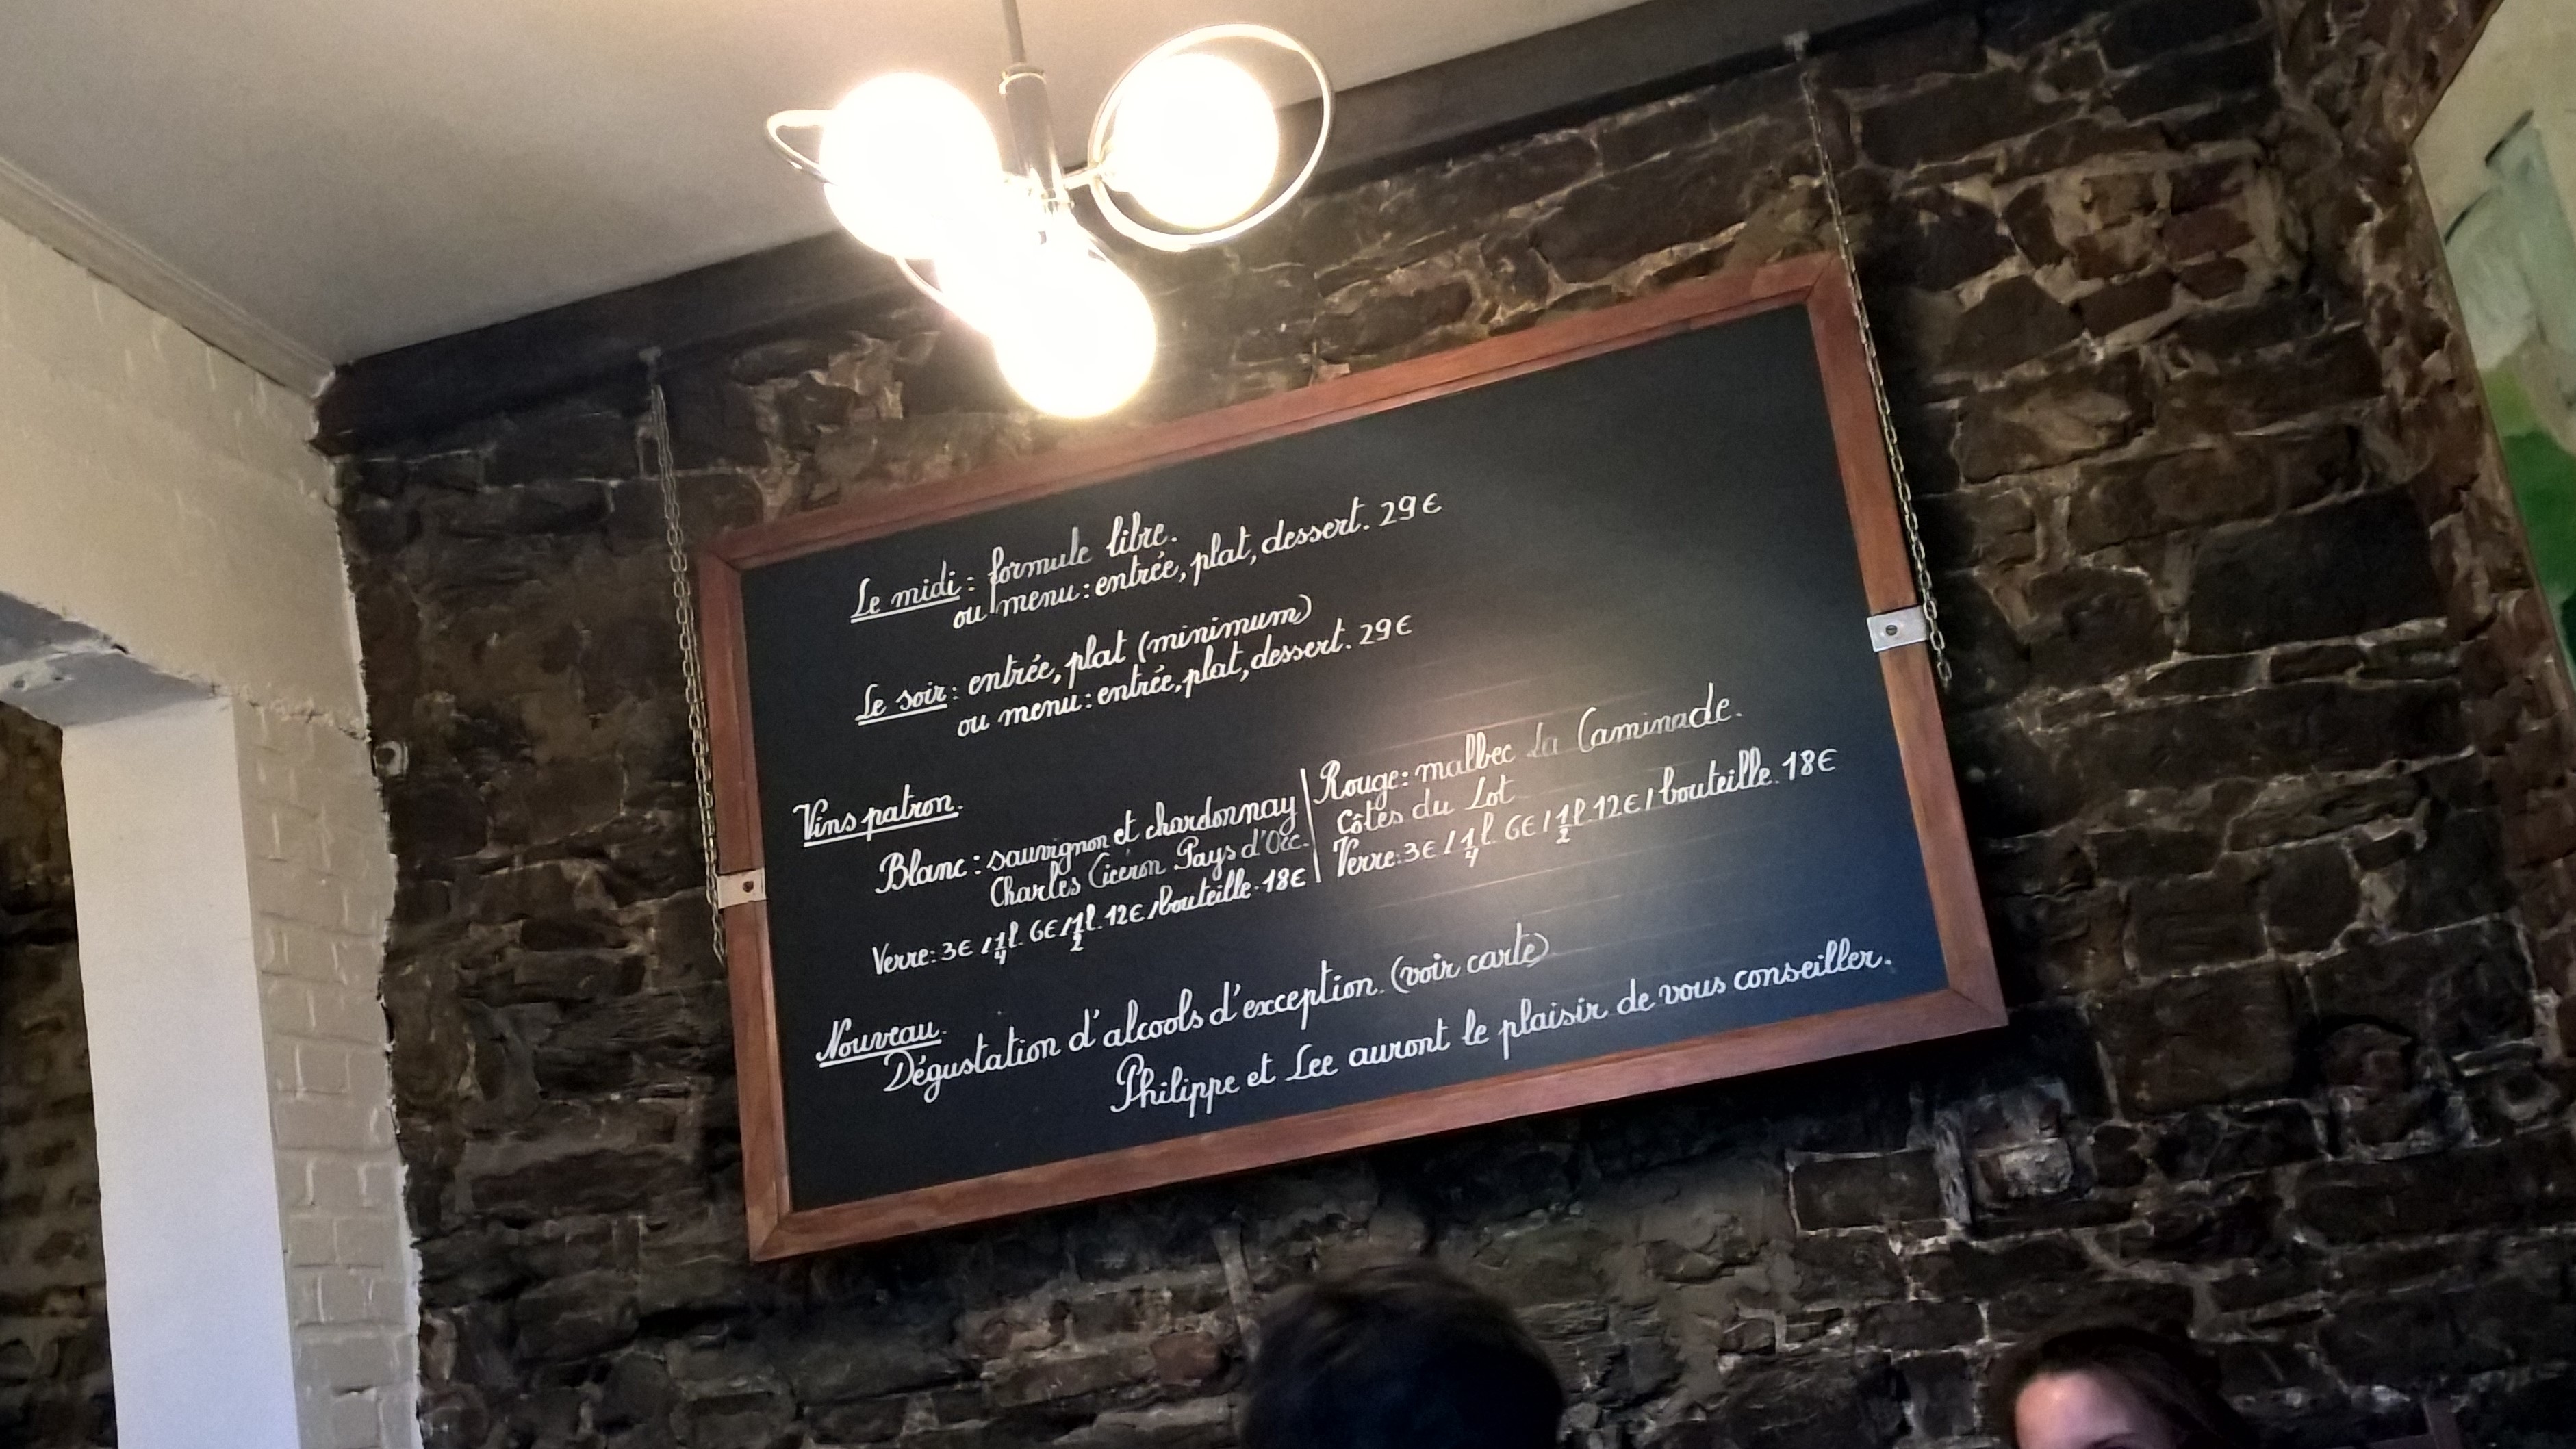 Le midi : formule libre.
ou menu : entrée, plat, dessert. 29€
Le soir : entrée, plat (minimum)
ou menu : entrée, plat, dessert. 29€
Vins patron.
Blanc : sauvignon et chardonnay
Charles Cicéron Pays d'Oc.
Verre : 3€ / 1/4 l. 6€ / 1/2 l. 12€ / bouteille. 18€
Rouge : malbec La Caminade.
Côtes du Lot
Verre : 3€ / 1/4 l. 6€ / 1/2 l. 12€ / bouteille. 18€
Nouveau.
Dégustation d'alcools d'exception. (voir carte)
Philippe et Lee auront le plaisir de vous conseiller.